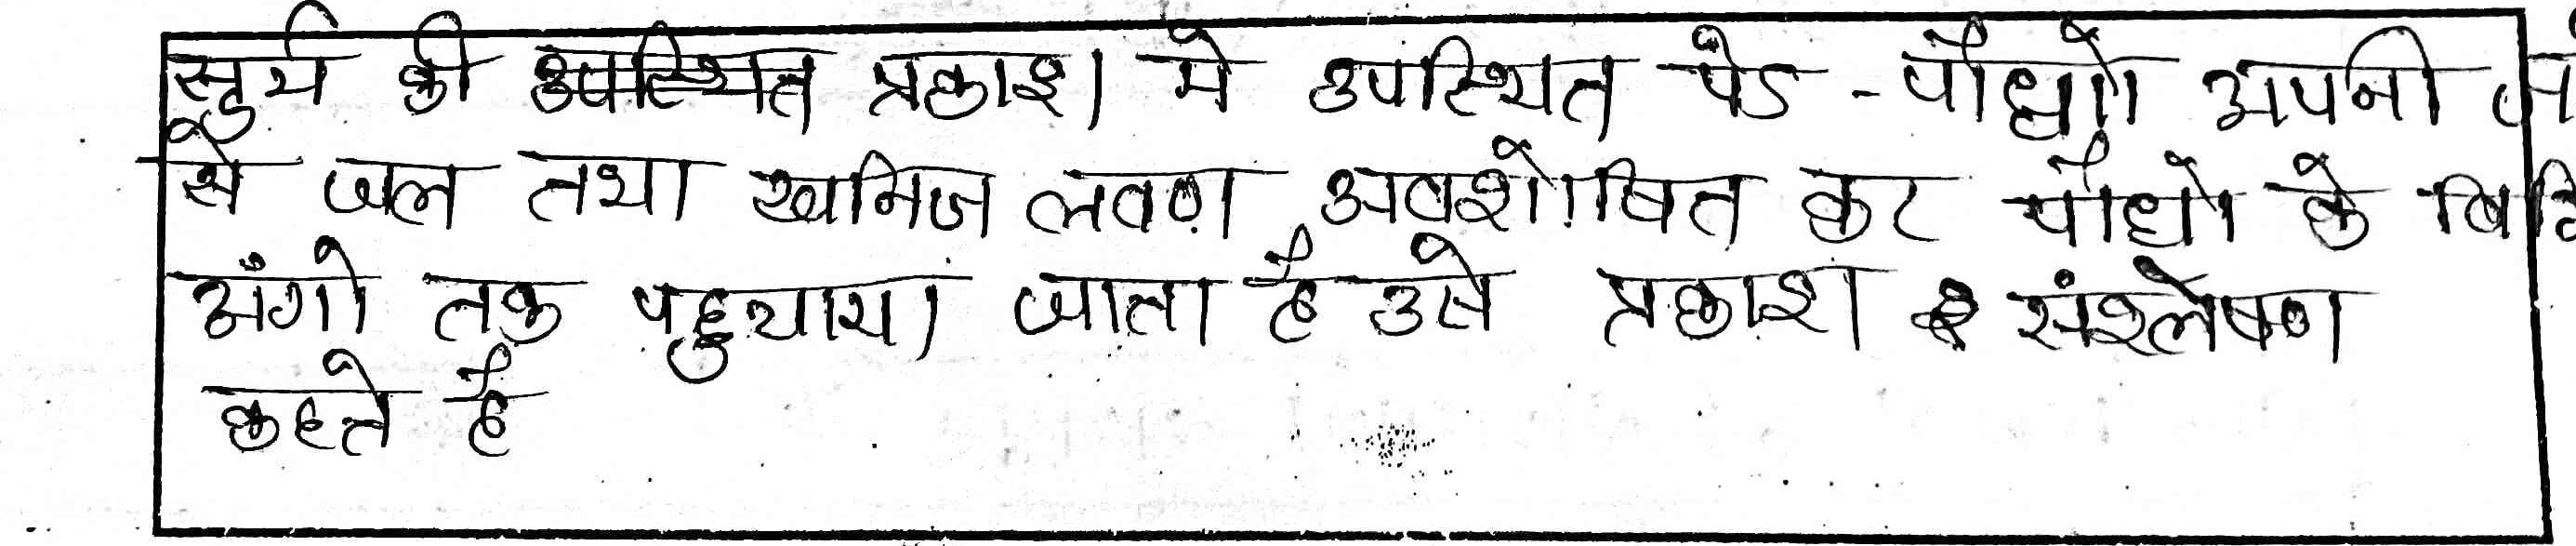 सुर्य की उपस्थित प्रकाश मे उपस्थित पेड - पौधो अपनी
से जल तथा खनिज लवण अवशोषित कर पौधो के
अंगो तक पहुचाया जाता है उसे प्रकाश संश्लेषण
कहते है